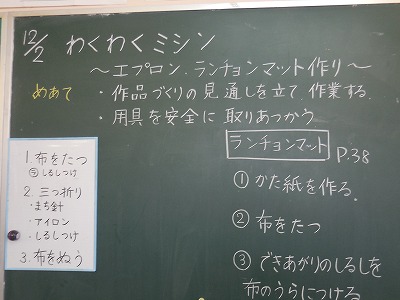 12/2 わくわくミシン
～エプロン、ランチョンマット作り～
めあて ・作品づくりの見通しを立て、作業する。
・用具を安全に取りあつかう
ランチョンマット P.38
①かた紙を作る。
②布をたつ
③できあがりのしるしを
布のうらにつける
1.布をたつ
しるしつけ
2.三つ折り
・まち針
・アイロン
・しるしつけ
3.布をぬう